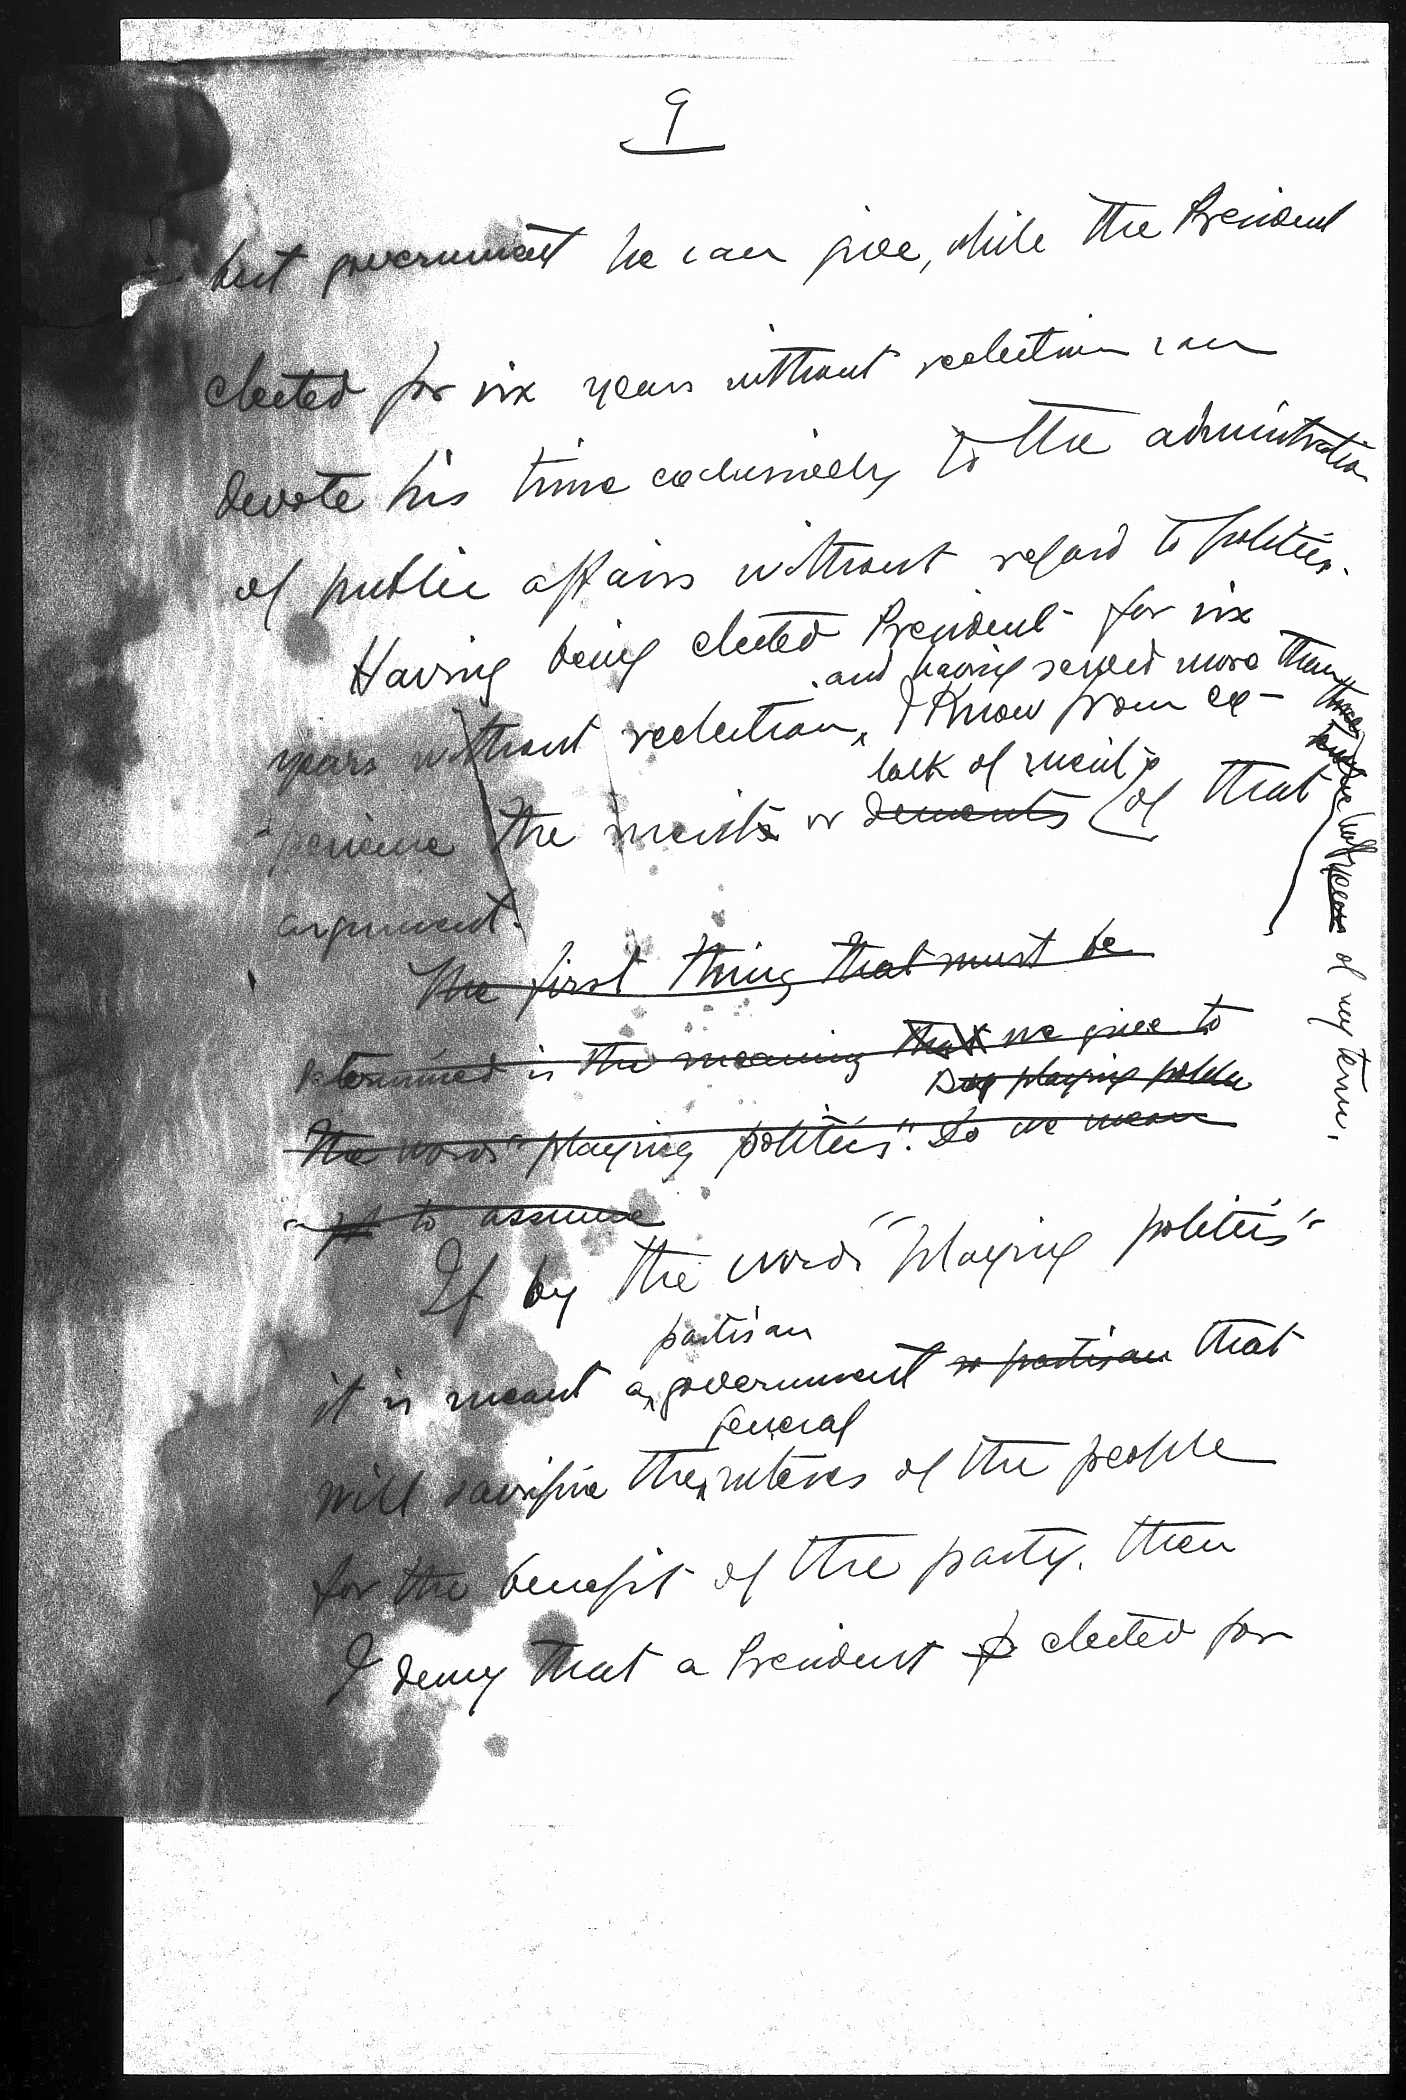 9
best government he can give, while the President
elected for six years without reelection can
devote his time exclusively to the administration
of public affairs without regard to politics.
Having being elected President for six
and having served more than three
half years of my term.
years without reelection, I know from ex-
lack of merit
perience the merits or demerits of that
argument.
The first thing that must be
determined is the meaning that we give to
Say playing politics
the words "playing politics". Do we mean
to assume
If by the words "playing politics"
partisan
it is meant a government so partisan that
general
will sacrifice the interes of the people
for the benefit of the party, then
I deny that a President elected for